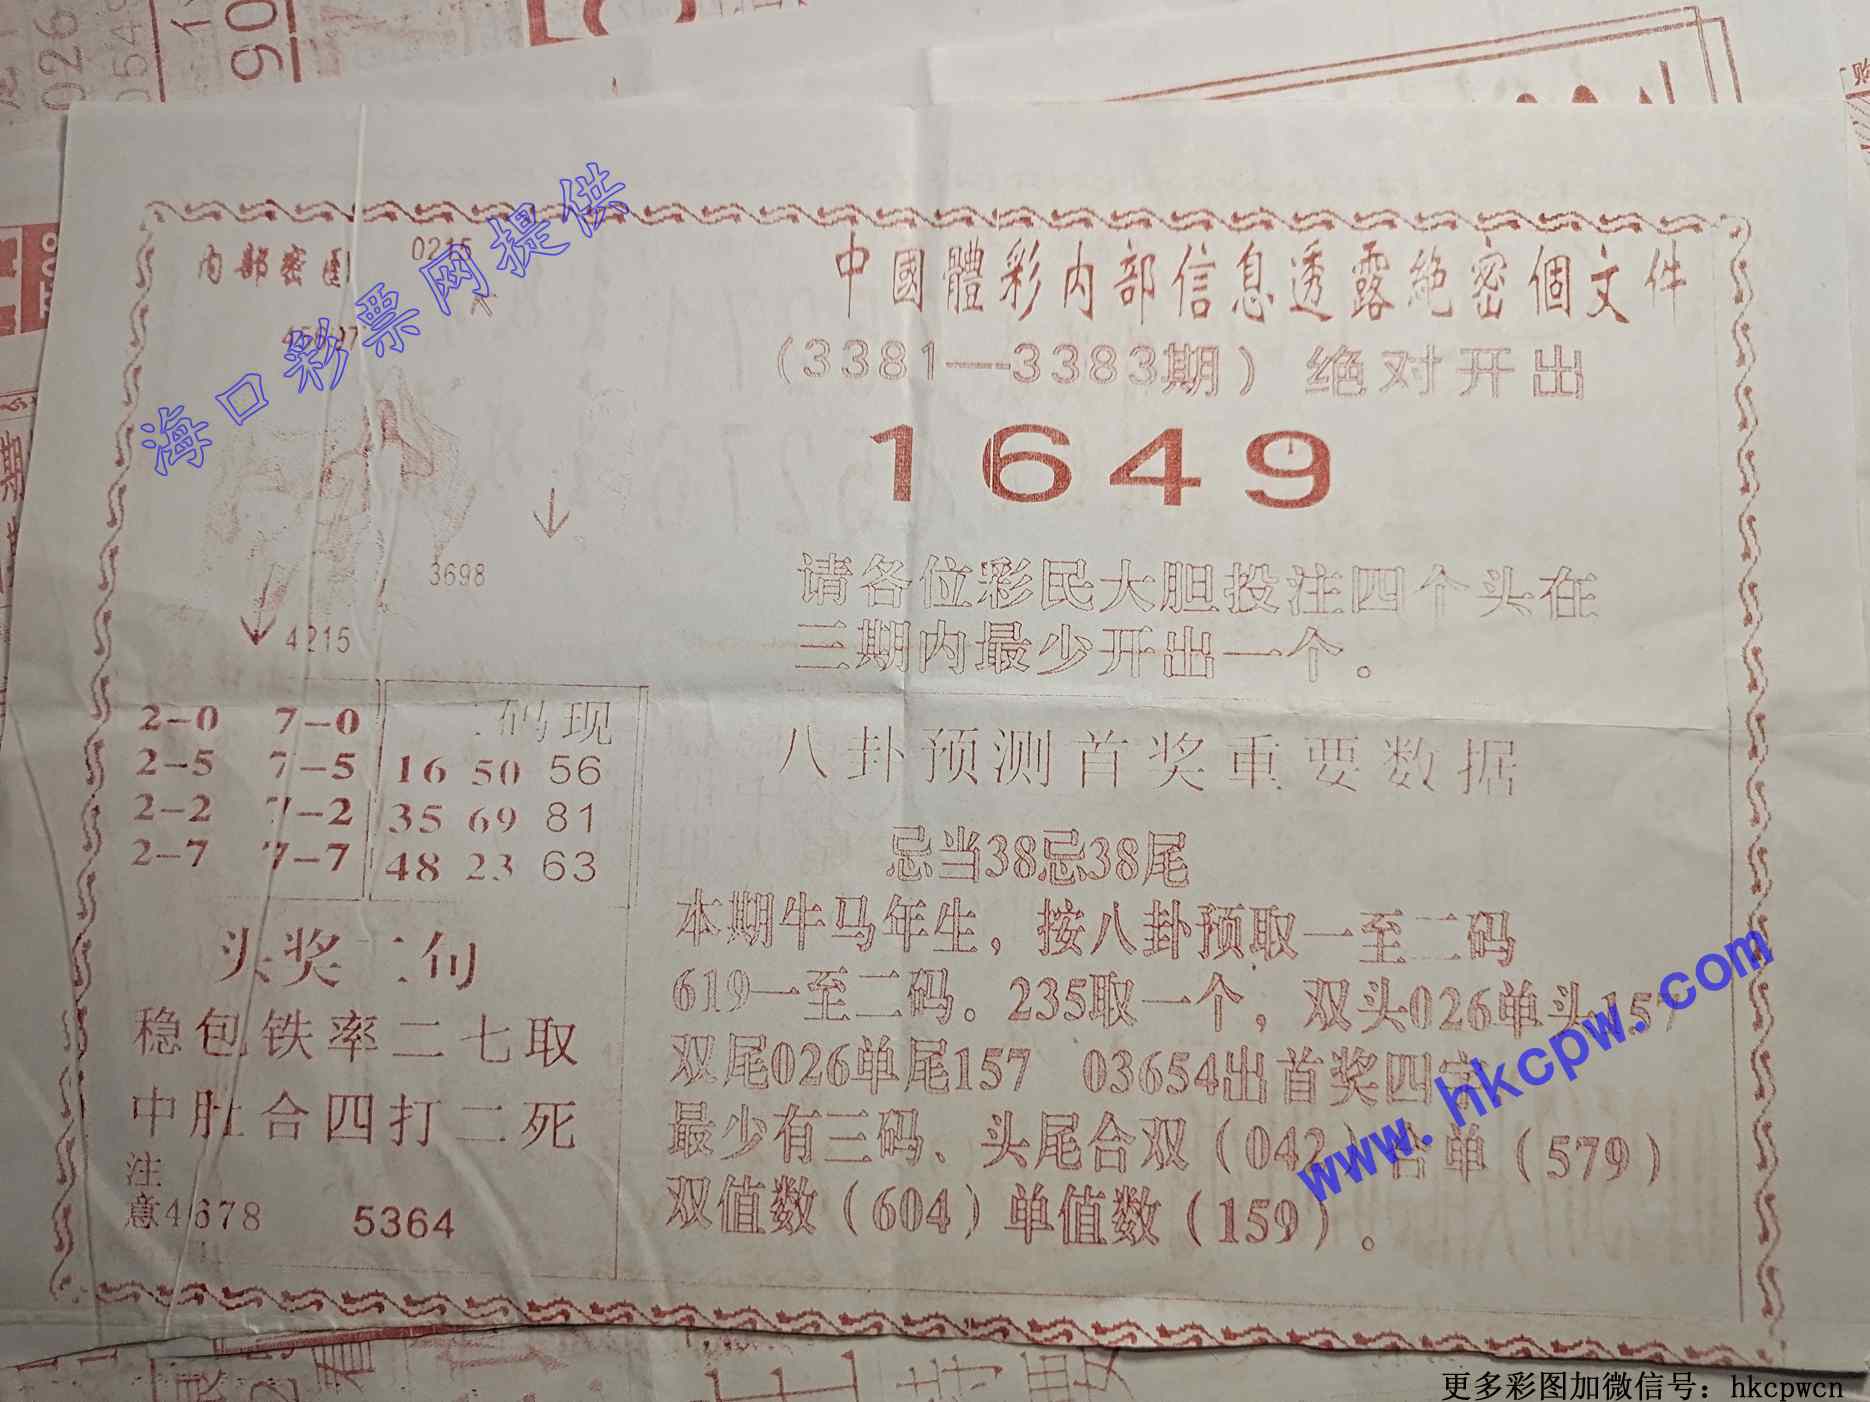 内部密图
0215
海口彩票网提供
3698
4215
中國體彩内部信息透露絶密個文件
(3381—3383期) 绝对开出
1649
请各位彩民大胆投注四个头在
三期内最少开出一个。
2-0 7-0
2-5 7-5
2-2 7-2
2-7 7-7
码现
16 50 56
35 69 81
48 23 63
头奖二句
稳包铁率二七取
中肚合四打二死
注
意4678 5364
八卦预测首奖重要数据
忌当38忌38尾
本期牛马年生，按八卦预取一至二码
619一至二码。235取一个，双头026单头157
双尾026单尾157 03654出首奖四字
最少有三码、头尾合双(042)合单(579)
双值数(604)单值数(159)。
www.hkcpw.com
更多彩图加微信号：hkcpwcn